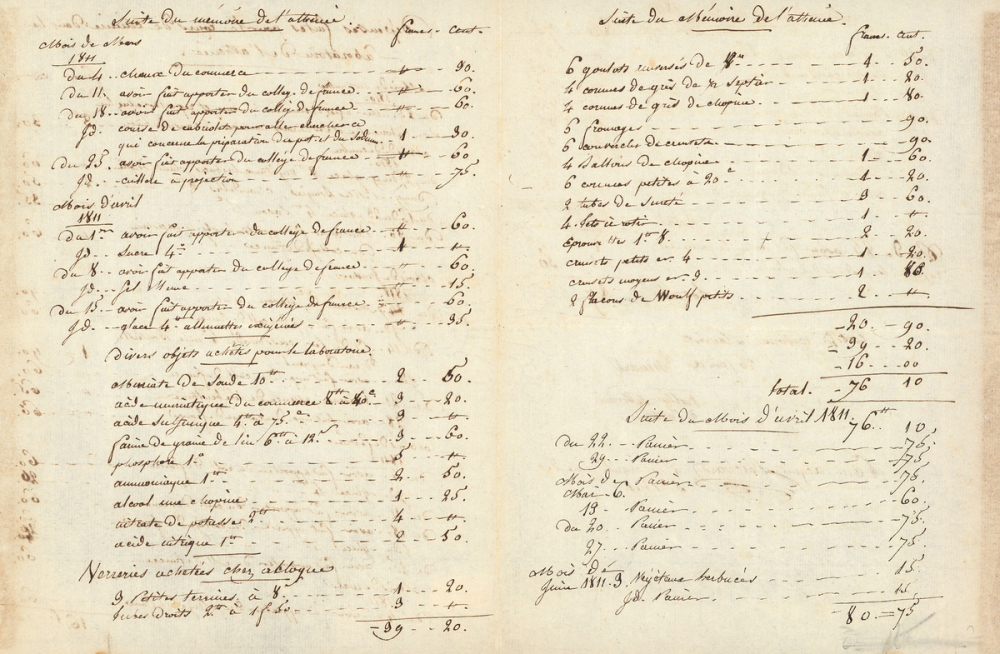 Suite du mémoire de l'atheneé
francs. cent.
Mois de Mars
1811
Du 4 .. chaux du commerce - - - - " - - - 90.
Du 11. avoir fait apporter du colleg. de france - - " - - - 60.
Du 18 .. avoir fait apporter du colleg de france - - " - - - 60.
Jd. course de cabriolet pour aller chercher ce
qui concerne la préparation du pot. et du Sodium - - 1 - - - 30.
Du 25. avoir fait apporter du college de france - - " - - - 60
Jd. - cuillere à projection - - - - " - - - 75.
Mois d'avril
1811
Du 1er avoir fait apporter du collège de france - - " - - - 60.
Jd. - Sucre 4on - - - - 1 - - - "
Du 8 - avoir fait apporter du college de france - - " - - - 60.
Jd. - - - - - " - - - 15
Du 15 - avoir fait apporter du college de france - - " - - - 60.
Jd. - glace 4s allumettes - - " - - - 35.
Divers objets achetés pour le laboratoire
Muriate de Soude 10tt - - - - 2 - - - 50.
acide muriatique du commerce 8tt à 40c - - 3 - - - 20
acide Sulfurique 4tt à 75c - - - - 3 - - - "
farine de graine de lin 6tt à 12s - - - - 3 - - - 60.
phosphore 1o - - - - 5 - - - "
ammoniaque 1tt - - - - 2 - - - 50
alcool une chopine - - - - 1 - - - 25.
nitrate de potasse 2tt - - - - 4 - - - "
acide nitrique 1tt - - - - 2 - - - 50
Verreries achetées chez
3 Petites terrines à 8s - - - - 1 - - - 20
tubes droits 2tt à 1f 50 - - - - 3 - - - "
- 39 - - 20.
Suite du Mémoire de l'atheneé.
francs. cent.
6 goulots renversés de - - - - 1 - - 50.
4 cornues de grès de ½ Septier - - - - 1 - - 20
4 cornues de grès de chopine - - - - 1 - - 80.
6 fromages - - - - 90.
6 couvercles de creusets - - - - 90.
4 Ballons de chopine - - - - 1 - - 60.
6 cornues petites à 20c - - - - 1 - - 20
2 tubes de Sureté - - - - 3 - - 60.
4. - - - - 1 - - "
Eprouvette 1tt 8 - - - - 2 - - 20
creusets petits no 4 - - - - 1 - - 20.
creusets moyens no 3 - - - - 1 - - 80.
2 flacons de Woulf petits - - - - 2 - - "
- 20 - - 90.
- 39 - - 20.
- 16 - - 00
total. - 76 10
Suite du Mois d'avril 1811.
76tt 10
Du 22. - - Panier - - - - 75.
29. - - Panier - - - - 75.
Mois de
Mai - 6. Panier - - - - 75
13 - Panier - - - - 60.
Du 20 - Panier - - - - 75.
27. - Panier - - - - 75
Mois de
Juin 1811. 3. Végétaux herbacés - - - - 15.
Jd. Panier - - - -
- 80 = 75